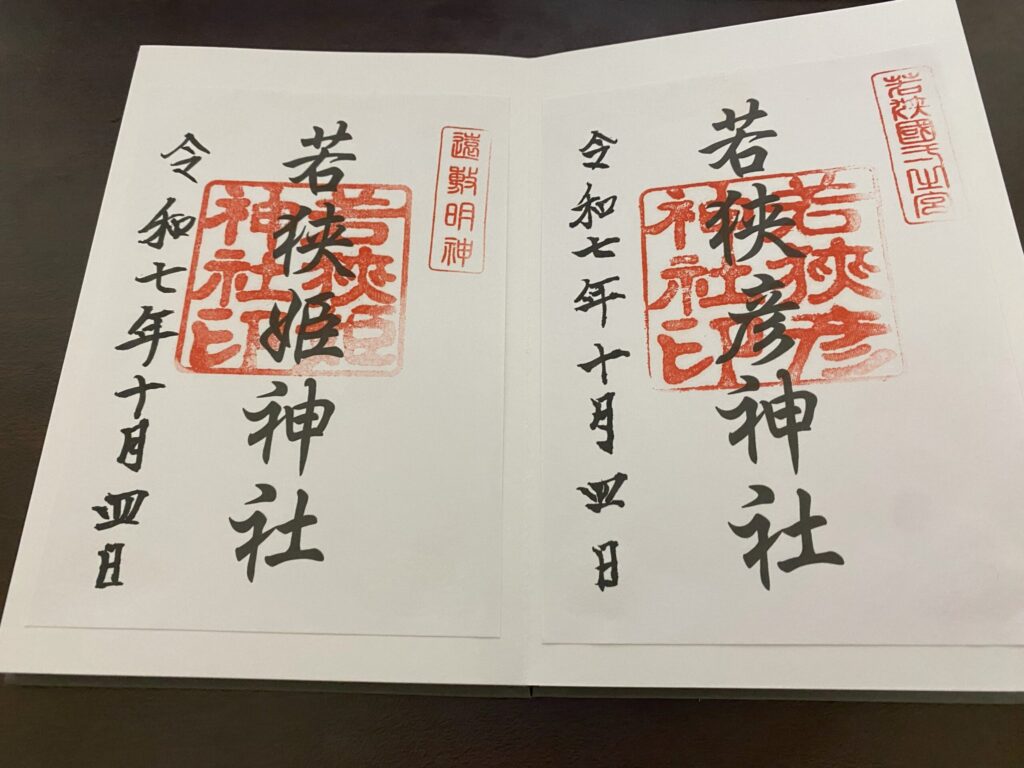 若狭國一之宮
若狭彦神社
若狭彦神社印
令和七年十月四日
遠敷明神
若狭姫神社
若狭姫神社印
令和七年十月四日